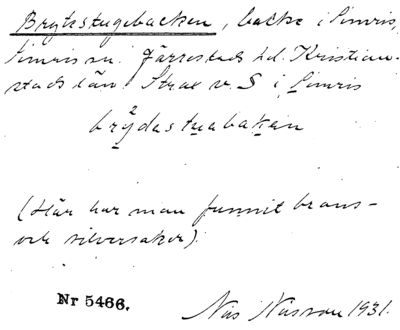 Brytstugebacken, backe i Simris,
Simris sn. Järrestads hd. Kristian-
stads län. Strax v. S i Simris
brȳ²dastuabakan
(Här har man funnit brons-
och silversaker).
Nr 5466. Nils Nilsson 1931.